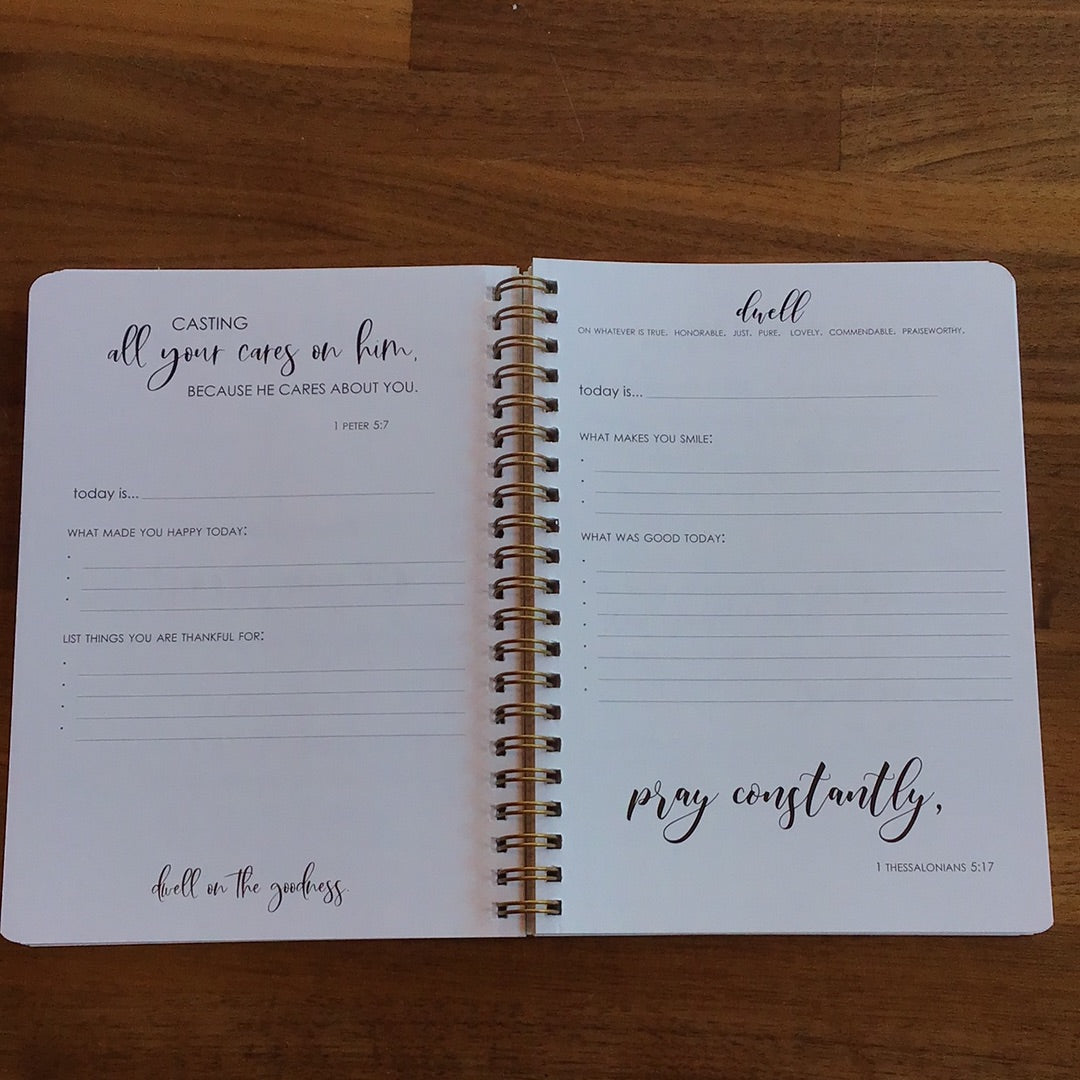 CASTING
all your cares on him,
BECAUSE HE CARES ABOUT YOU.
1 PETER 5:7
today is...
WHAT MADE YOU HAPPY TODAY:
LIST THINGS YOU ARE THANKFUL FOR:
dwell on the goodness.
dwell
ON WHATEVER IS TRUE. HONORABLE. JUST. PURE. LOVELY. COMMENDABLE. PRAISEWORTHY.
today is...
WHAT MAKES YOU SMILE:
WHAT WAS GOOD TODAY:
pray constantly,
1 THESSALONIANS 5:17